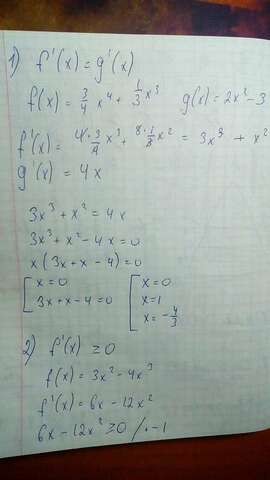 1) f'(x) = g'(x)
f(x) = 3/4 x⁴ + 1/3 x³ g(x) = 2x² - 3
f'(x) = 4·3/4 x³ + 3·1/3 x² = 3x³ + x²
g'(x) = 4x
3x³ + x² = 4x
3x³ + x² - 4x = 0
x(3x + x - 4) = 0
[ x = 0 [ x = 0
3x + x - 4 = 0 x = 1
x = -4/3
2) f'(x) ≥ 0
f(x) = 3x² - 4x³
f'(x) = 6x - 12x²
6x - 12x² ≥ 0 /· -1